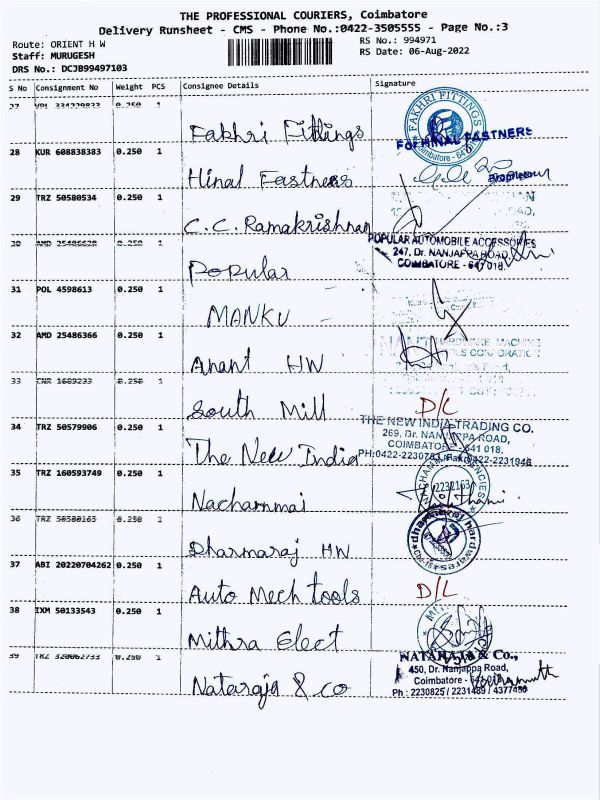 THE PROFESSIONAL COURIERS, Coimbatore
Delivery Runsheet - CMS - Phone No.:0422-3505555 - Page No.:3
Route: ORIENT H W
RS No.: 994971
Staff: MURUGESH
RS Date: 06-Aug-2022
DRS No.: DCJB99497103
S No Consignment No Weight PCS Consignee Details Signature
27 0.250 1
Fakhri Fittings
FAKHRI FITTINGS
Coimbatore - 641
For HINAL FASTNERS
28 KUR 608838383 0.250 1
Hinal Fastners
Proprietour
29 TRZ 50580534 0.250 1
C.C. Ramakrishnan
30 AMD 25486628 0.250 1
Popular
POPULAR AUTOMOBILE ACCESSORIES
247, Dr. NANJAPPA ROAD,
COIMBATORE - 641 018.
31 POL 4598613 0.250 1
MANKU
32 AMD 25486366 0.250 1
Anant HW
HARDWARE MACHINE
TOOLS CORPORATION
33 CNR 1689233 0.250 1
South Mill
D/L
34 TRZ 50579906 0.250 1
The New India
THE NEW INDIA TRADING CO.
269, Dr. NANJAPPA ROAD,
COIMBATORE - 641 018.
PH:0422-2230783, Fax:0422-2231946
35 TRZ 160593749 0.250 1
Nachammai
NACHAMMAI AGENCIES
2232165
36 TRZ 50580165 0.250 1
Dharmaraj HW
dharmaraj hardwares
37 ABI 20220704262 0.250 1
Auto Mech tools
D/L
38 IXM 50133543 0.250 1
Mithra Elect
39 TRZ 320062733 0.250 1
Nataraja & co
NATARAJA & Co.,
450, Dr. Nanjappa Road,
Coimbatore - 641 018
Ph : 2230825 / 2231489 / 4377450